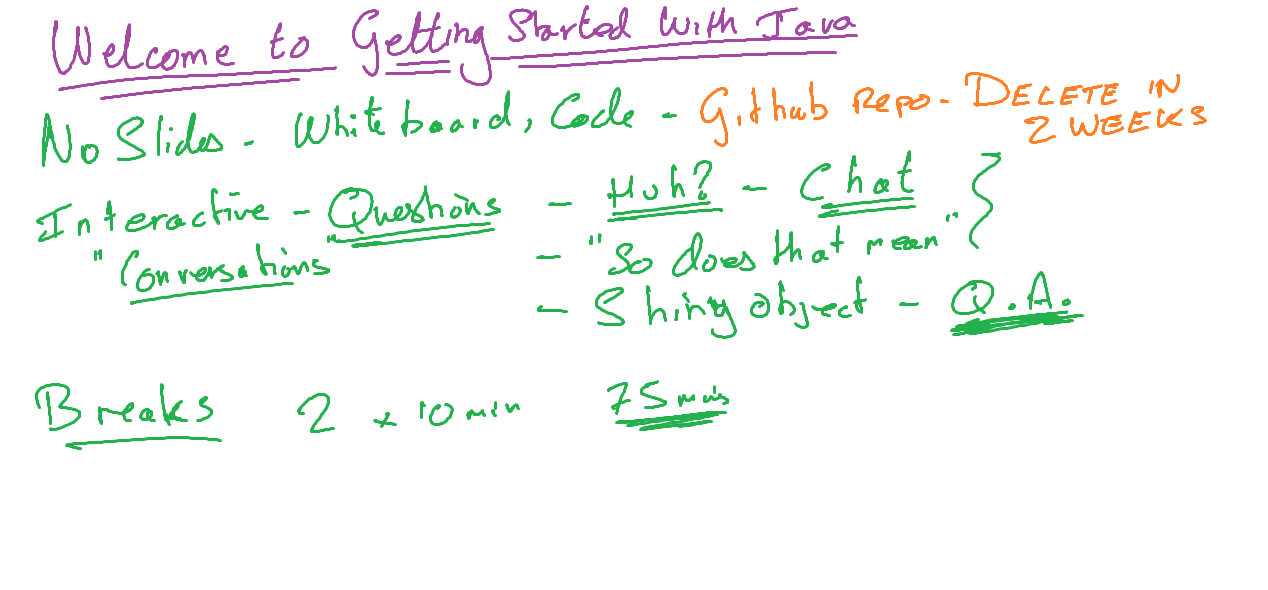 Welcome to Getting Started With Java
No Slides - Whiteboard, Code - Github Repo - DELETE IN
2 WEEKS
Interactive - Questions - Huh? - Chat
"Conversations" - "So does that mean"
- Shiny object - Q.A.
Breaks 2 x 10 min 75 mins